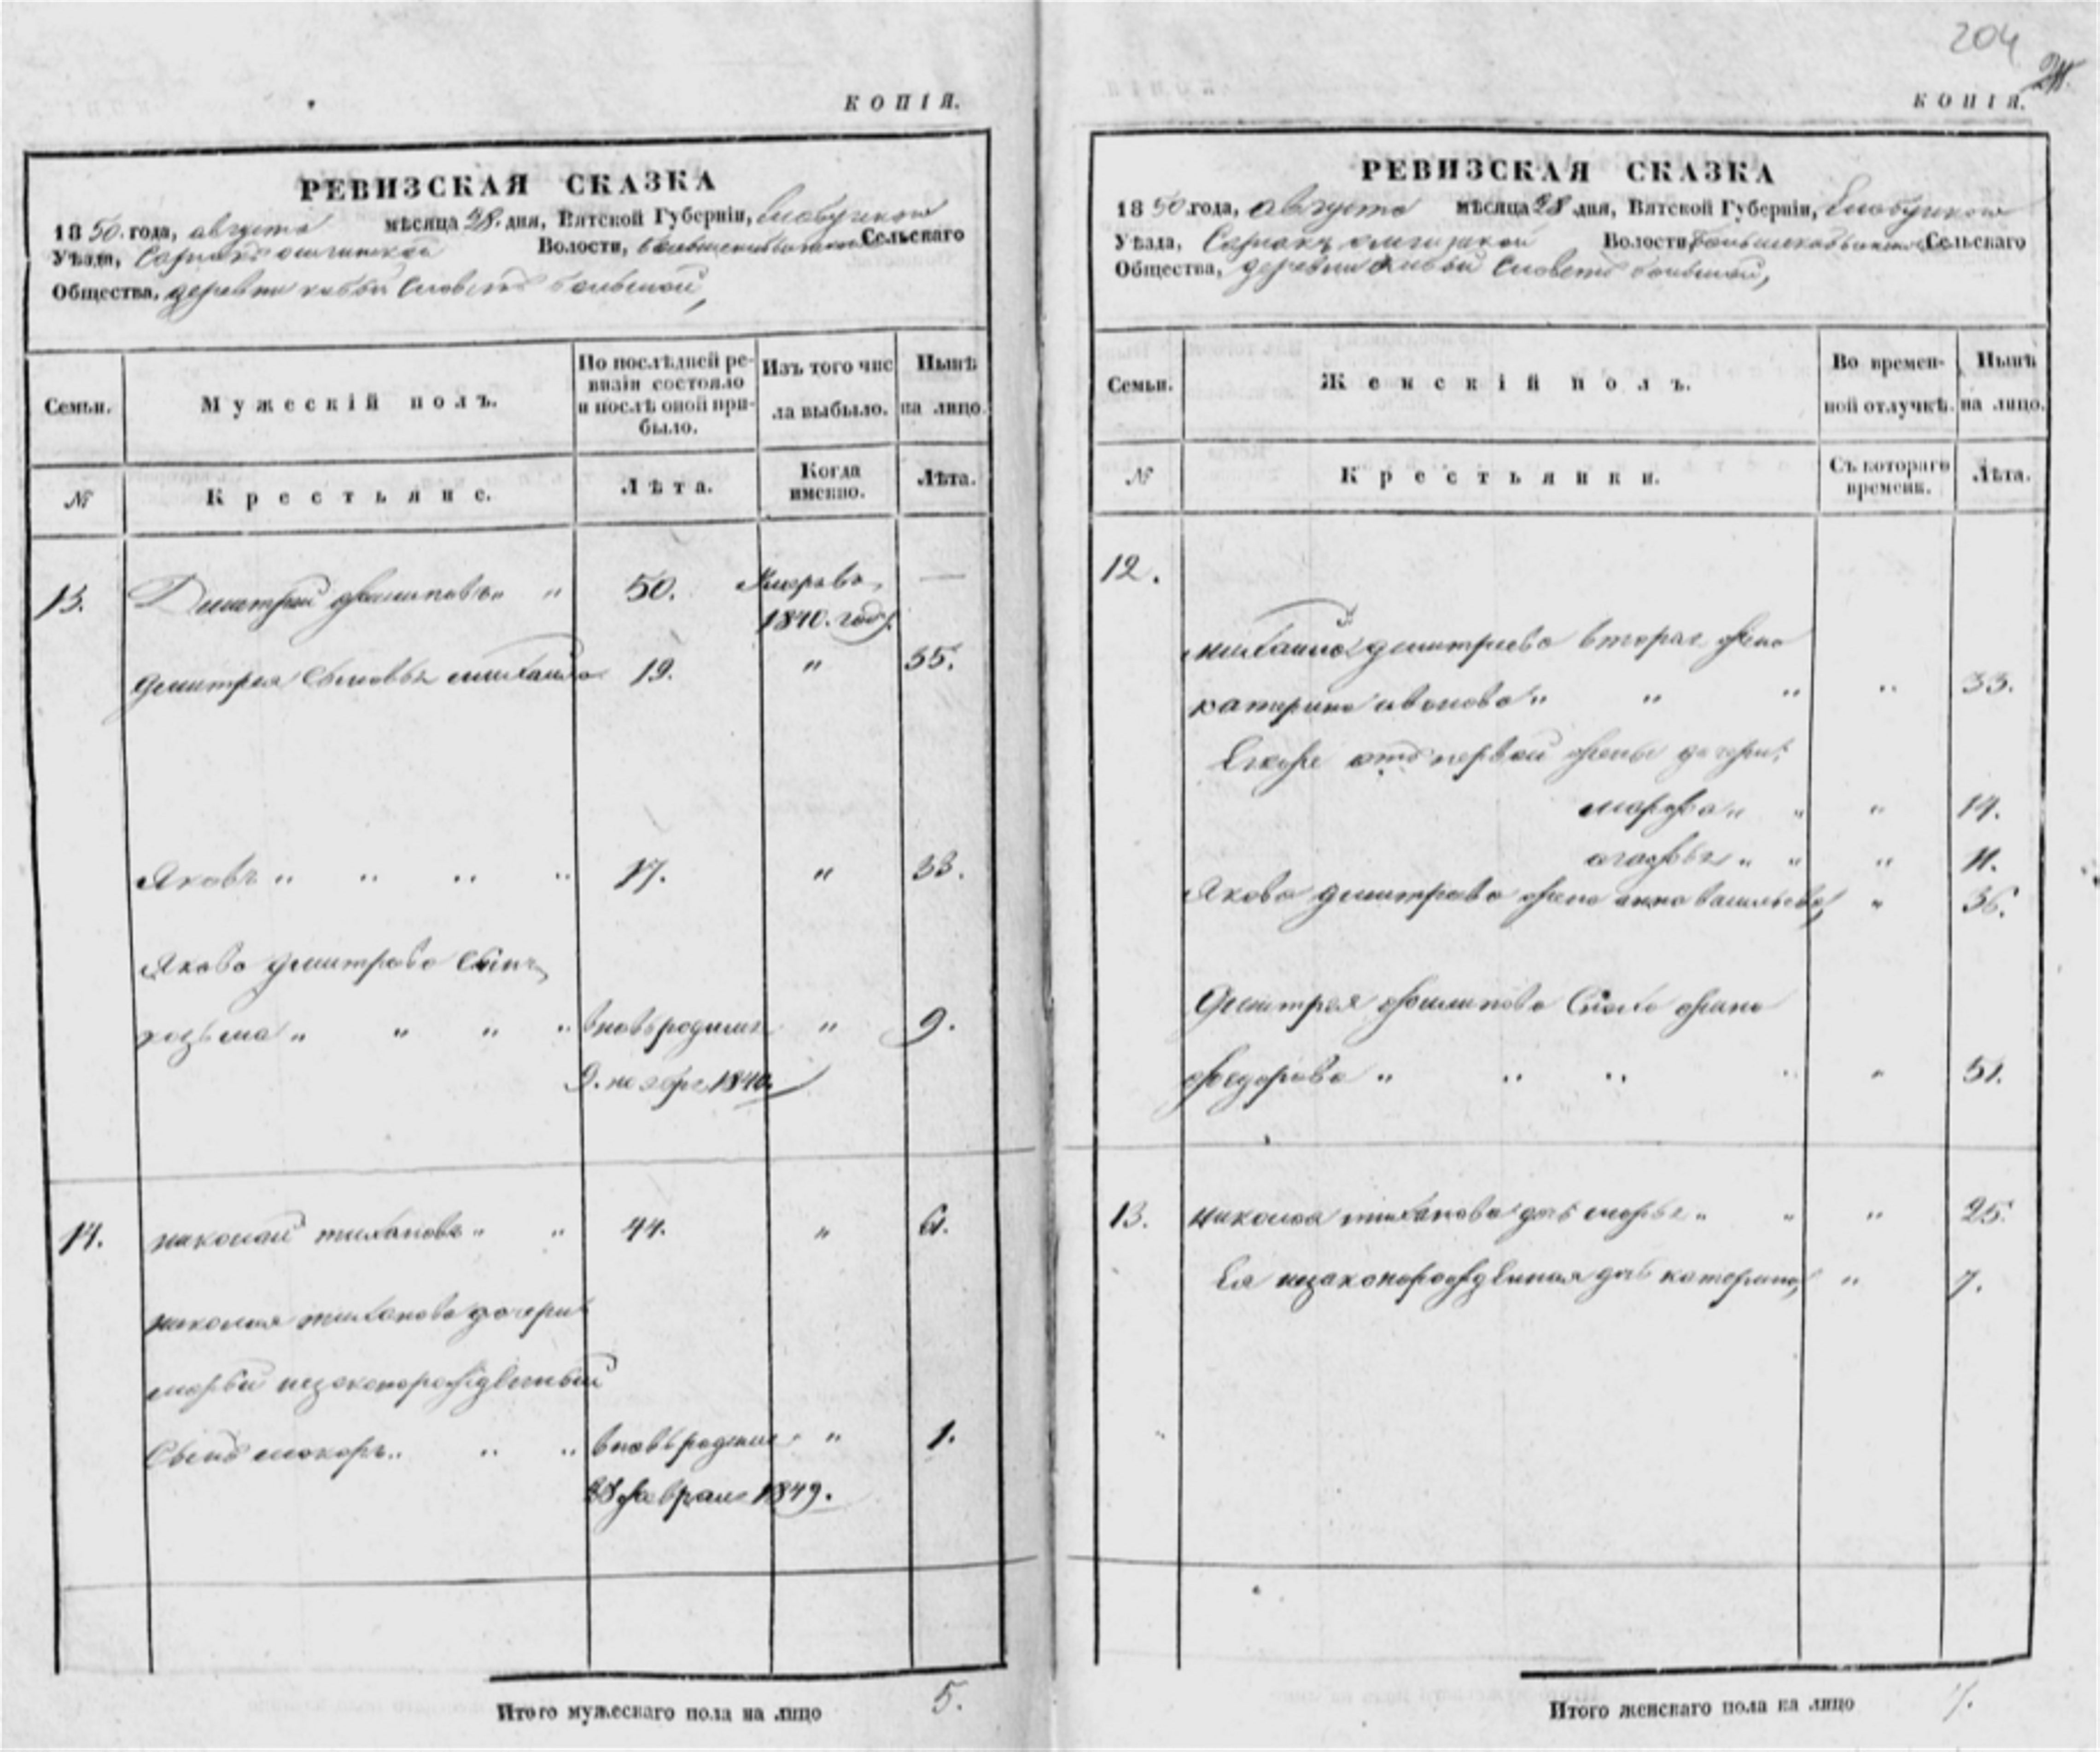 КОПІЯ.
РЕВИЗСКАЯ СКАЗКА
1850. года, августа мѣсяца 28. дня, Вятской Губерніи, Елабугскаго
Уѣзда, Волости, Сельскаго
Общества, деревни большой,
Семьи.
Мужескій полъ.
По послѣдней ре-
визіи состояло
и послѣ оной при-
было.
Изъ того чис
ла выбыло.
Нынѣ
на лицо.
№
Крестьяне.
Лѣта.
Когда
именно.
Лѣта.
13. Дмитрий филиповъ " " 50. Умеръ въ —
1840. году.
дмитрея сыновья михайло 19. " 35.
Яковъ " " " " 17. " 33.
Якова дмитрева сынъ
козьма " " " " вновьродился " 9.
9. ноября 1840.
14. николай тихановъ " " 44. " 61.
николая тиханова дочери
марьи незаконорожденный
сынъ макаръ " " " вновьродился " 1.
28 февраля 1849.
Итого мужескаго пола на лицо 5.
204
КОПІЯ.
РЕВИЗСКАЯ СКАЗКА
1850 года, августа мѣсяца 28 дня, Вятской Губерніи, Елабугскаго
Уѣзда, Волости, Сельскаго
Общества, деревни большой,
Семьи.
Женскій полъ.
Во времен-
ной отлучкѣ.
Нынѣ
на лицо.
№
Крестьянки.
Съ котораго
времени.
Лѣта.
12.
михайла дмитриева вторая жена
катерина иванова " " " " 33.
Егоже отъ первой жены дочери:
марфа " " " 14.
агафья " " " 11.
Якова дмитрева жена анна васильева, " 36.
Дмитрея филипова жена
федорова " " " " " 51.
13. николая тиханова дочь марья " " " 25.
Ея незаконорожденная дочь катерина, " 7.
Итого женскаго пола на лицо 7.